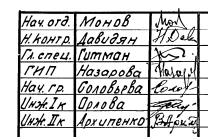 Нач. отд. Монов
Н. контр. Давидян
Гл. спец. Гитман
ГИП Назарова
Нач. гр. Соловьева
Инж. Iк Орлова
Инж. IIк Архипенко